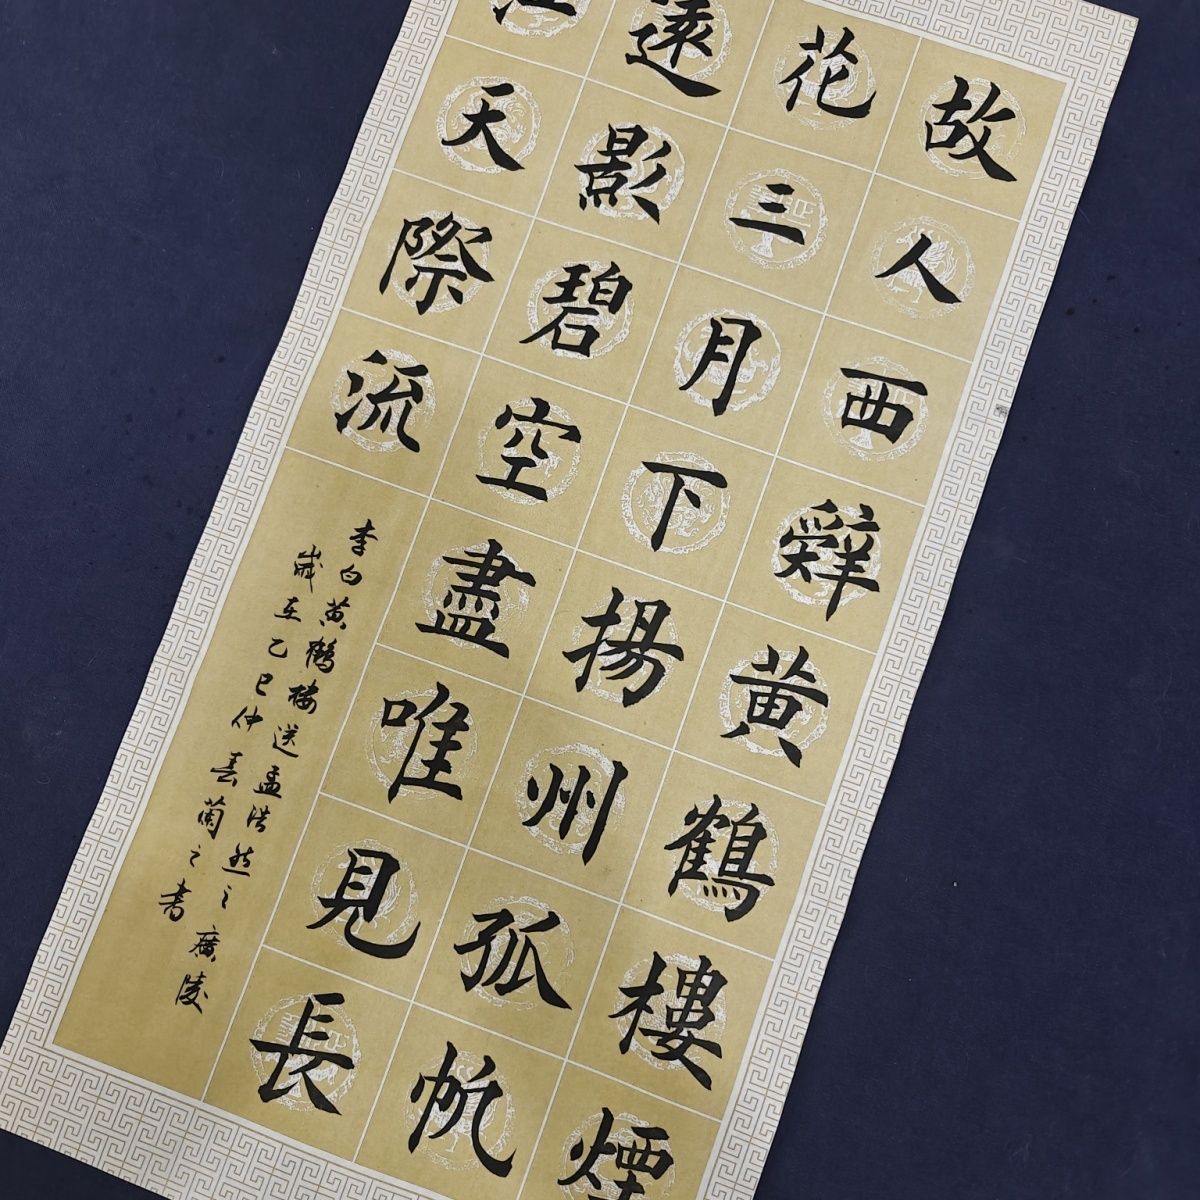 故人西辭黄鶴樓煙
花三月下揚州孤帆
遠影碧空盡唯見長
江天際流
李白黄鶴楼送孟浩然之廣陵
歲在乙巳仲春蘭之書